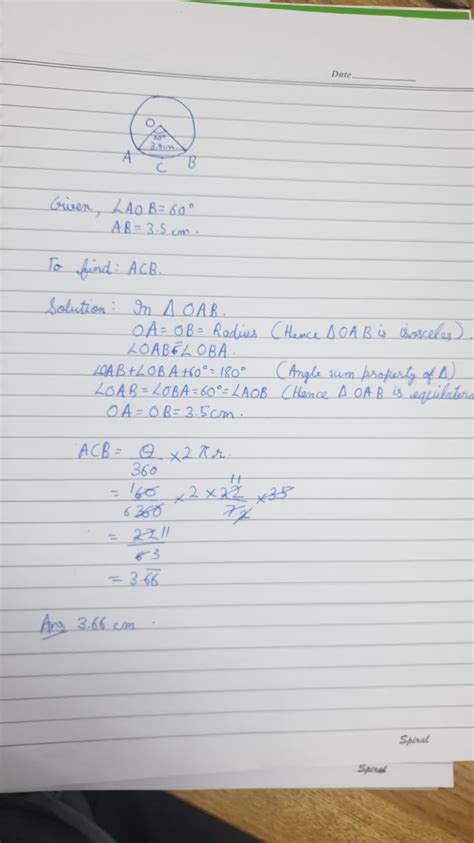 Date
O
60°
3.5cm
A
B
C
Given, ∠AOB = 60°
AB = 3.5 cm.
To find: ACB.
Solution: In Δ OAB.
OA = OB = Radius (Hence Δ OAB is isosceles)
∠OAB = ∠OBA.
∠OAB + ∠OBA + 60° = 180° (Angle sum property of Δ)
∠OAB = ∠OBA = 60° = ∠AOB (Hence Δ OAB is equilatera
OA = OB = 3.5 cm.
ACB = θ/360 × 2 π r.
= 160/6360 × 2 × 22/7 × 35
11
= 22 11/6 3
= 3.66
Ans 3.66 cm.
Spiral
Spiral